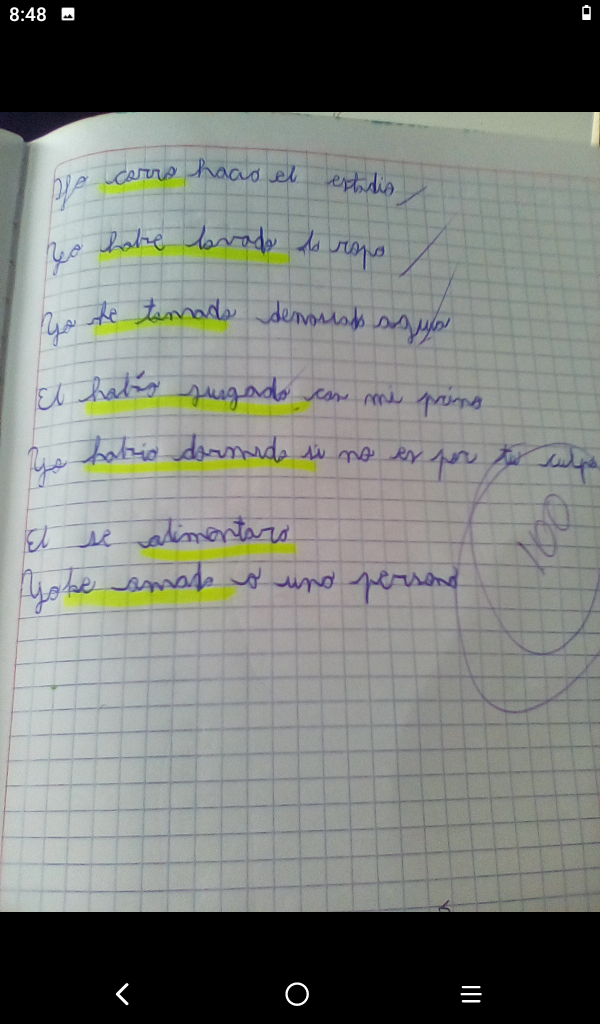 8:48
Yo corro hacia el estadio
Yo habe lavado la ropa
Yo he tomado demasiada agua
El había jugado con mi primo
Yo habria dormido si no es por tu culpa
El se alimentara
Yo he amado a una persona
100